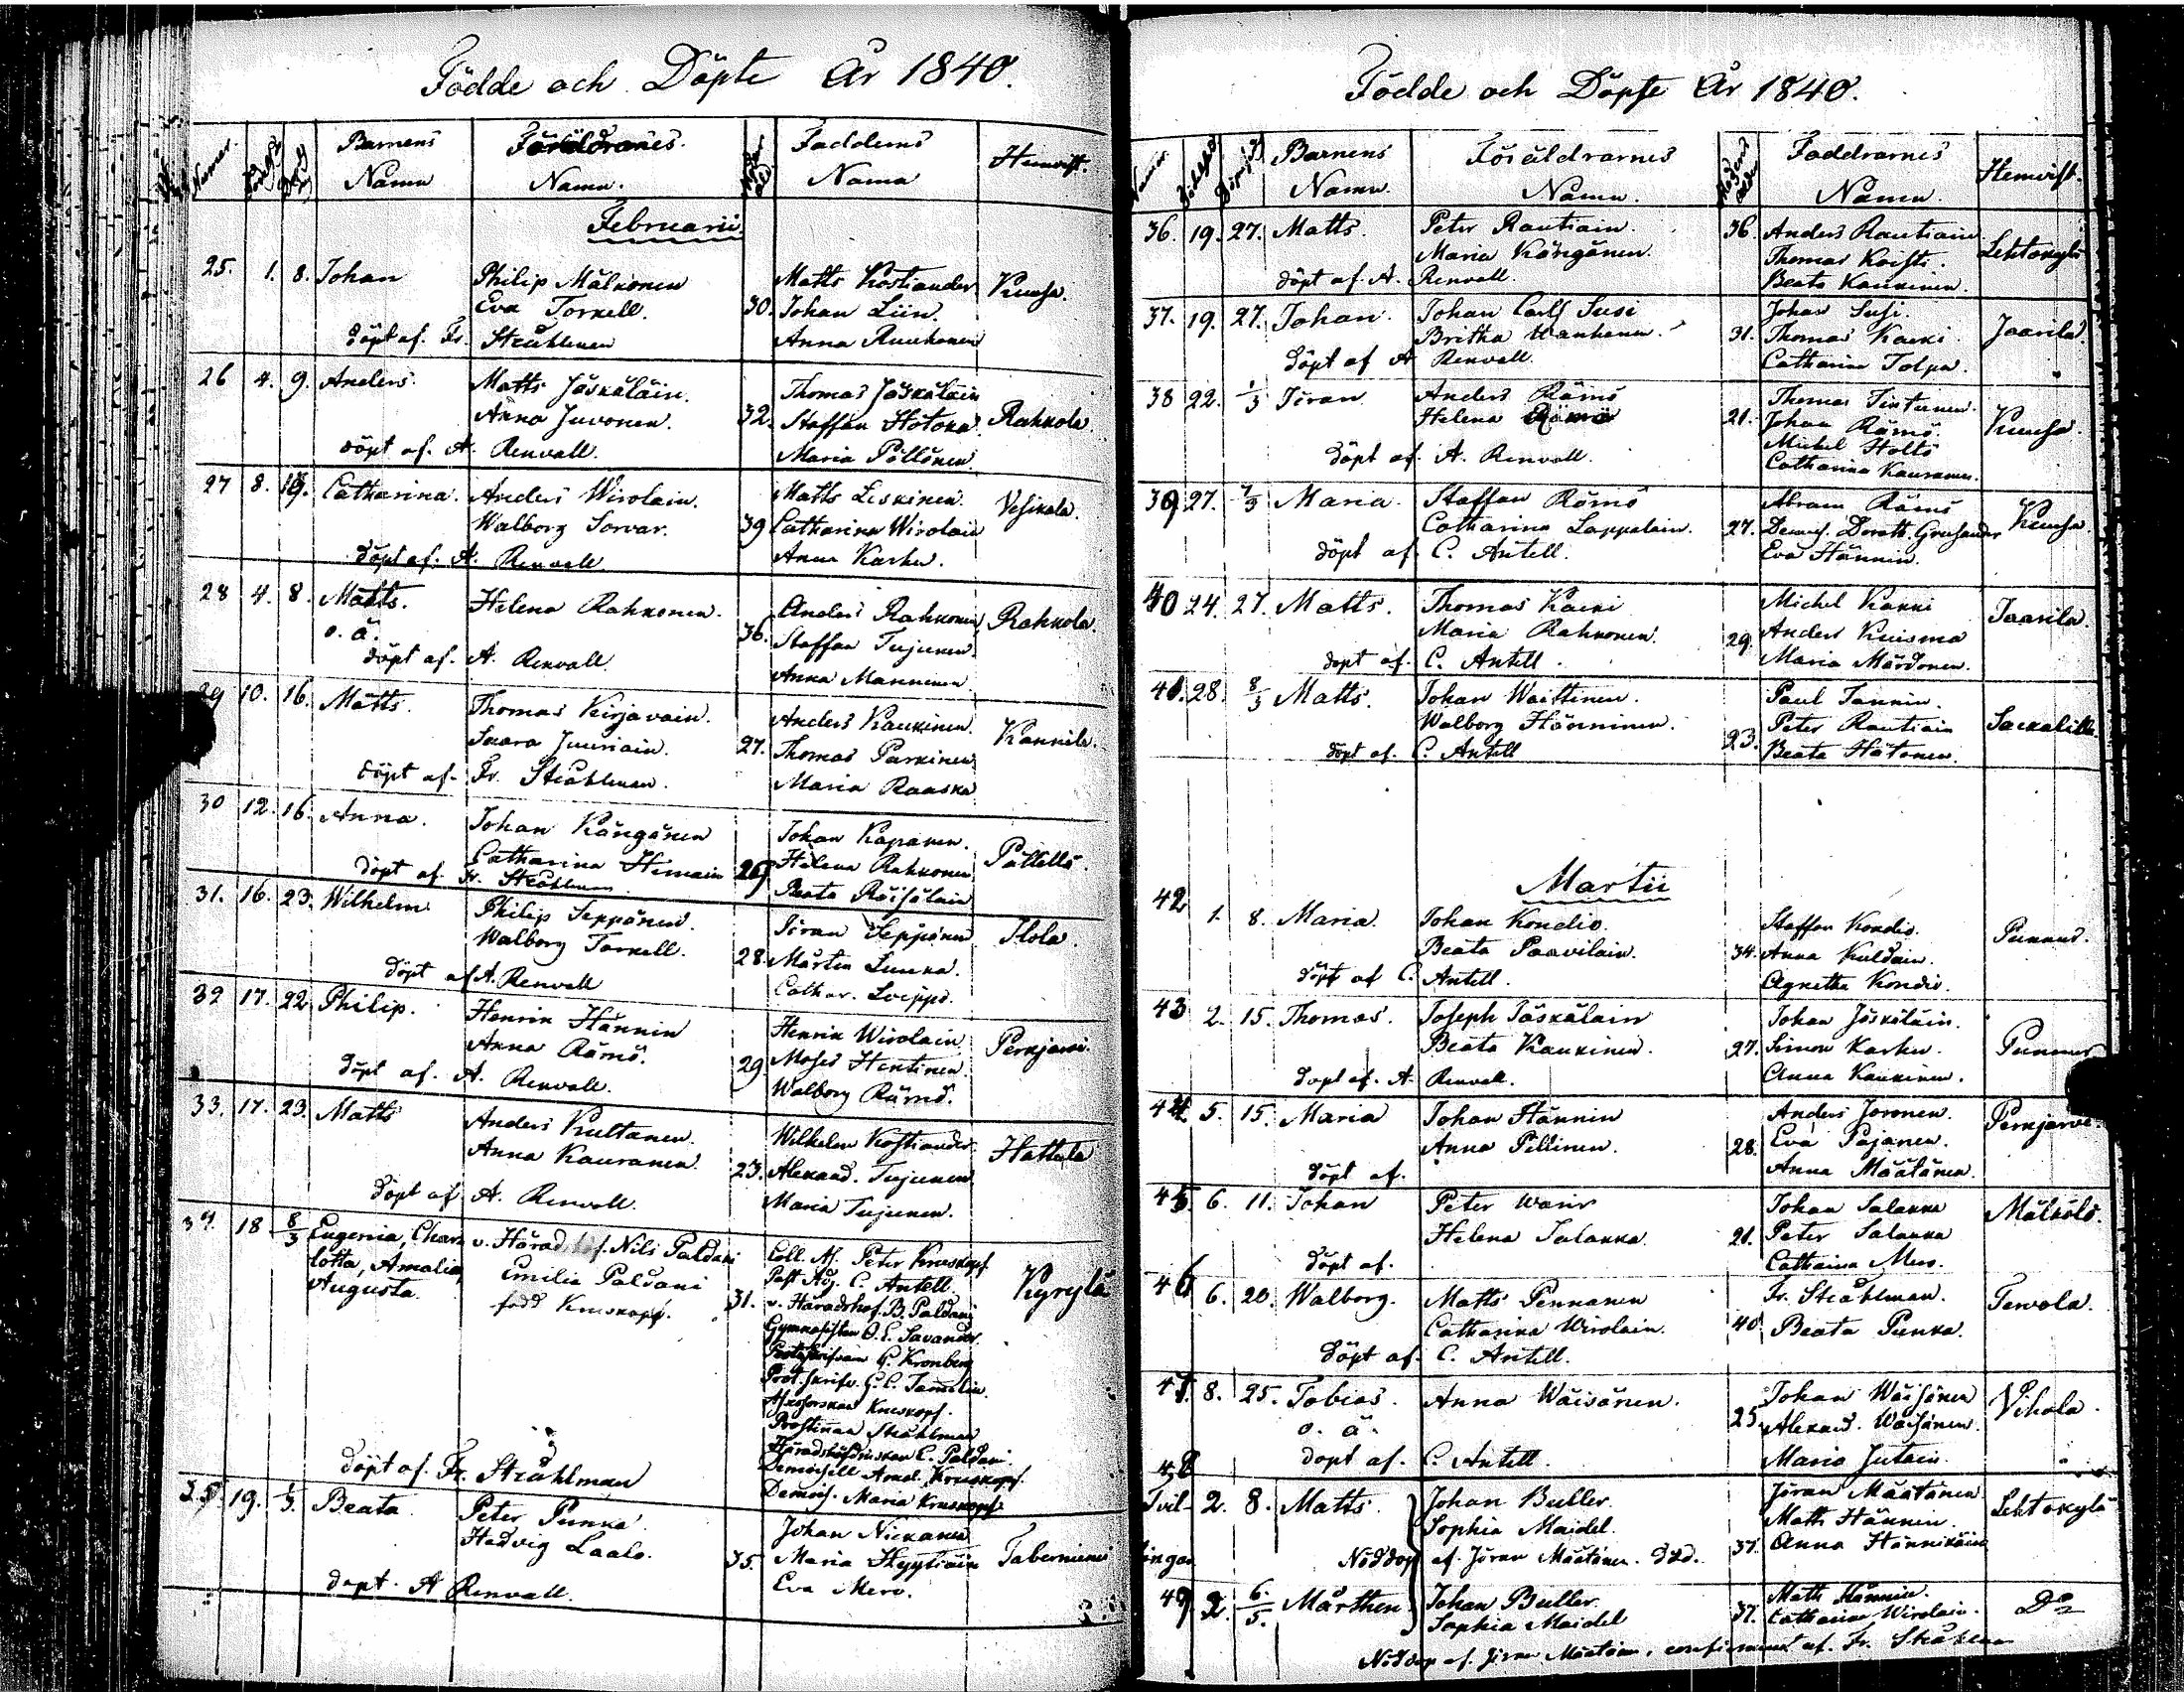 Födde och Döpte År 1840.
Numer.
Barnens Namn
Föräldrarnes Namn.
Faddern's Namn
Hemvist.
Februarii
25. 1. 8. Johan Philip Mälkönen Matts Kostiander Kuusa.
Eva Torkell. 30. Johan Liin.
döpt af. Fr. Stråhlman Anna Ruuhonen
26 4. 9. Anders. Matts Jäskäläin. Thomas Jäskäläin
Anna Juvonen. 32. Staffan Hotoka. Rahkola
döpt af. A. Renvall. Maria Pöllönen
27 8. Catharina. Anders Wirolain. Matts Leskinen. Vesikala.
Walborg Sorvar. 39 Catharina Wirolain
döpt af. A. Renvall Anna Karhu.
28 4. 8. Matts. Helena Rahkonen. Anders Rahkonen Rahkola.
o. ä. 36. Staffan Tujunen.
döpt af. A. Renvall Anna Manninen
29 10. 16. Matts. Thomas Kirjavain. Anders Kaukinen. Kannila.
Saara Juuriain. 27. Thomas Parkinen
döpt af. Fr. Stråhlman. Maria Raaska
30 12. 16. Anna. Johan Kängänen Johan Kaparen. Pällellä.
Catharina Himain 26 Helena Rahkonen
döpt af. Fr. Stråhlman Beata Räisäläin
31. 16. 23. Wilhelm Philip Seppänen. Jöran Seppänen Ilola.
Walborg Torkell. 28. Mårten Luuka.
döpt af A. Renvall Cathar.
32 17. 22 Philip. Henrik Hännin Henrik Wirolain Perkjärvi.
Anna Rämö. 29 Moses Hentinen
döpt af. A. Renvall. Walborg Rämö.
33. 17. 23. Matts Anders Kultanen. Wilhelm Kostiander Hattula
Anna Kauranen. 23. Alexand. Tujunen
döpt af A. Renvall. Maria Tujunen.
34. 18 8/3 Eugenia, Char- v. Häradshöf. Nils Paldani Coll. As. Peter Kruskopf Kyrylä
lotta, Amalia, Emilia Paldani Past. Adj. C. Antell
Augusta. född Kruskopf. 31. v. Häradshöf. B. Paldani
Gymnasisten O. E. Savander
G. Kronberg
Prot. skrifv. G. E. Tammelin.
Assessorskan Kruskopf.
Prostinnan Stråhlman
Häradshöfdinskan C. Paldani.
Demoisell Amal. Kruskopf.
döpt af. Fr. Stråhlman Demois. Maria Kruskopf
35. 19. 1/3. Beata Peter Punka. Johan Nickanen
Hedvig Laalo. 35. Maria Hyytiäin Taberniemi
döpt. A Renvall. Eva Mero.
Födde och Döpte År 1840.
Barnens Namn.
Föräldrarnes Namn.
Faddrarnes Namn.
Hemvist.
36. 19. 27. Matts. Peter Rautiain. 36. Anders Rautiain Lehtokylä
Maria Kängänen. Thomas Koisti.
döpt af. A. Renvall. Beata Kaukinen.
37. 19. 27. Johan. Johan Carls Susi Johan Susi. Jaarila.
Britha Manhanen. 31. Thomas Kaeki
döpt af A Renvall. Catharina Tolpa.
38 22. 1/3 Jöran Anders Rämö Thomas Tintunen.
Helena Rämö 21. Johan Rämö. Kuusa.
Michel Holts
döpt af A. Renvall. Catharina Kauranen.
39 27. 7/3 Maria. Staffan Rämö Abram Rämö Kuusa.
Catharina Lappalain. 27. Demois. Doroth. Grusander
döpt af C. Antell. Eva Hännin.
40 24. 27. Matts. Thomas Kaeki Michel Kaeki Jaarila.
Maria Rahkonen. 29. Anders Kuisma
döpt af. C. Antell. Maria Mårdonen.
41. 28. 8/3 Matts. Johan Waittinen. Paul Tannin.
Walborg Hänninen. 23. Peter Rautiain
döpt af. C. Antell Beata Hätönen.
Martii
42 1. 8. Maria. Johan Kondio. Staffan Kondio.
Beata Paavilain. 34. Anna Kuldain.
döpt af C. Antell. Agnetha Kondio.
43 2. 15. Thomas. Joseph Jäskäläin Johan Jäskäläin.
Beata Kaukinen. 27. Simon Karhu. Punnus
döpt af. A. Renvall. Anna Kaukinen.
44 5. 15. Maria Johan Hännin Anders Joronen. Perkjärvi
Anna Pellinen. 28. Eva Pajanen.
döpt af. Anna Määtänen.
45. 6. 11. Johan Peter Waris Johan Salakka Mälkölä.
Helena Salakka. 21. Peter Salakka
döpt af. Catharina Mero.
46 6. 20. Walborg. Matts Pennanen Fr. Stråhlman. Tervola.
Catharina Wirolain. 40 Beata Punka.
döpt af. C. Antell.
47. 8. 25. Tobias. Anna Wäisänen. Johan Wäisänen Vihola.
o. ä. 25 Alexand. Wäisänen.
döpt af. C. Antell. Maria Jutain.
48 Tvil- 2. 8. Matts. Johan Buller. Jöran Määtänen Lehtokylä
Sophia Maidel. Matts Hännin.
lingar Nöddöp af. Jöran Määtänen. död. 37. Anna Hännikäin
49 2. 6/5. Mårthen. Johan Buller. Matts Hännin. Do
Sophia Maidel 37. Catharina Wirolain.
Nöddöp af. Jöran Määtänen, confirmerat af. Fr. Stråhlman